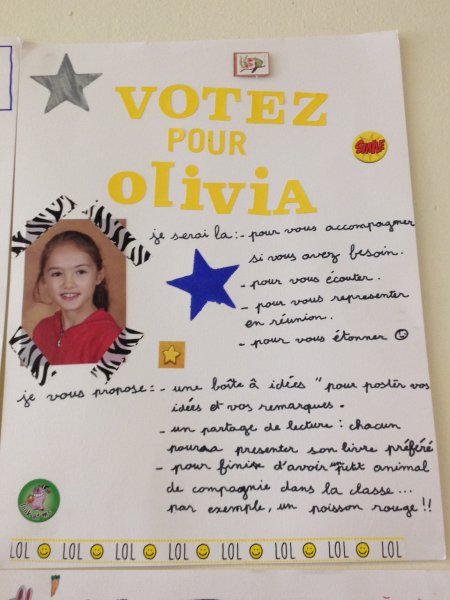 VOTEZ
POUR
OLIVIA
je serai là : - pour vous accompagner
si vous avez besoin.
- pour vous écouter.
- pour vous representer
en réunion.
- pour vous étonner
je vous propose : - une boîte à idées " pour poster vos
idées et vos remarques.
- un partage de lecture : chacun
pourra presenter son livre préféré
- pour finir d'avoir un petit animal
de compagnie dans la classe...
par exemple, un poisson rouge !!
LOL LOL LOL LOL LOL LOL LOL LOL